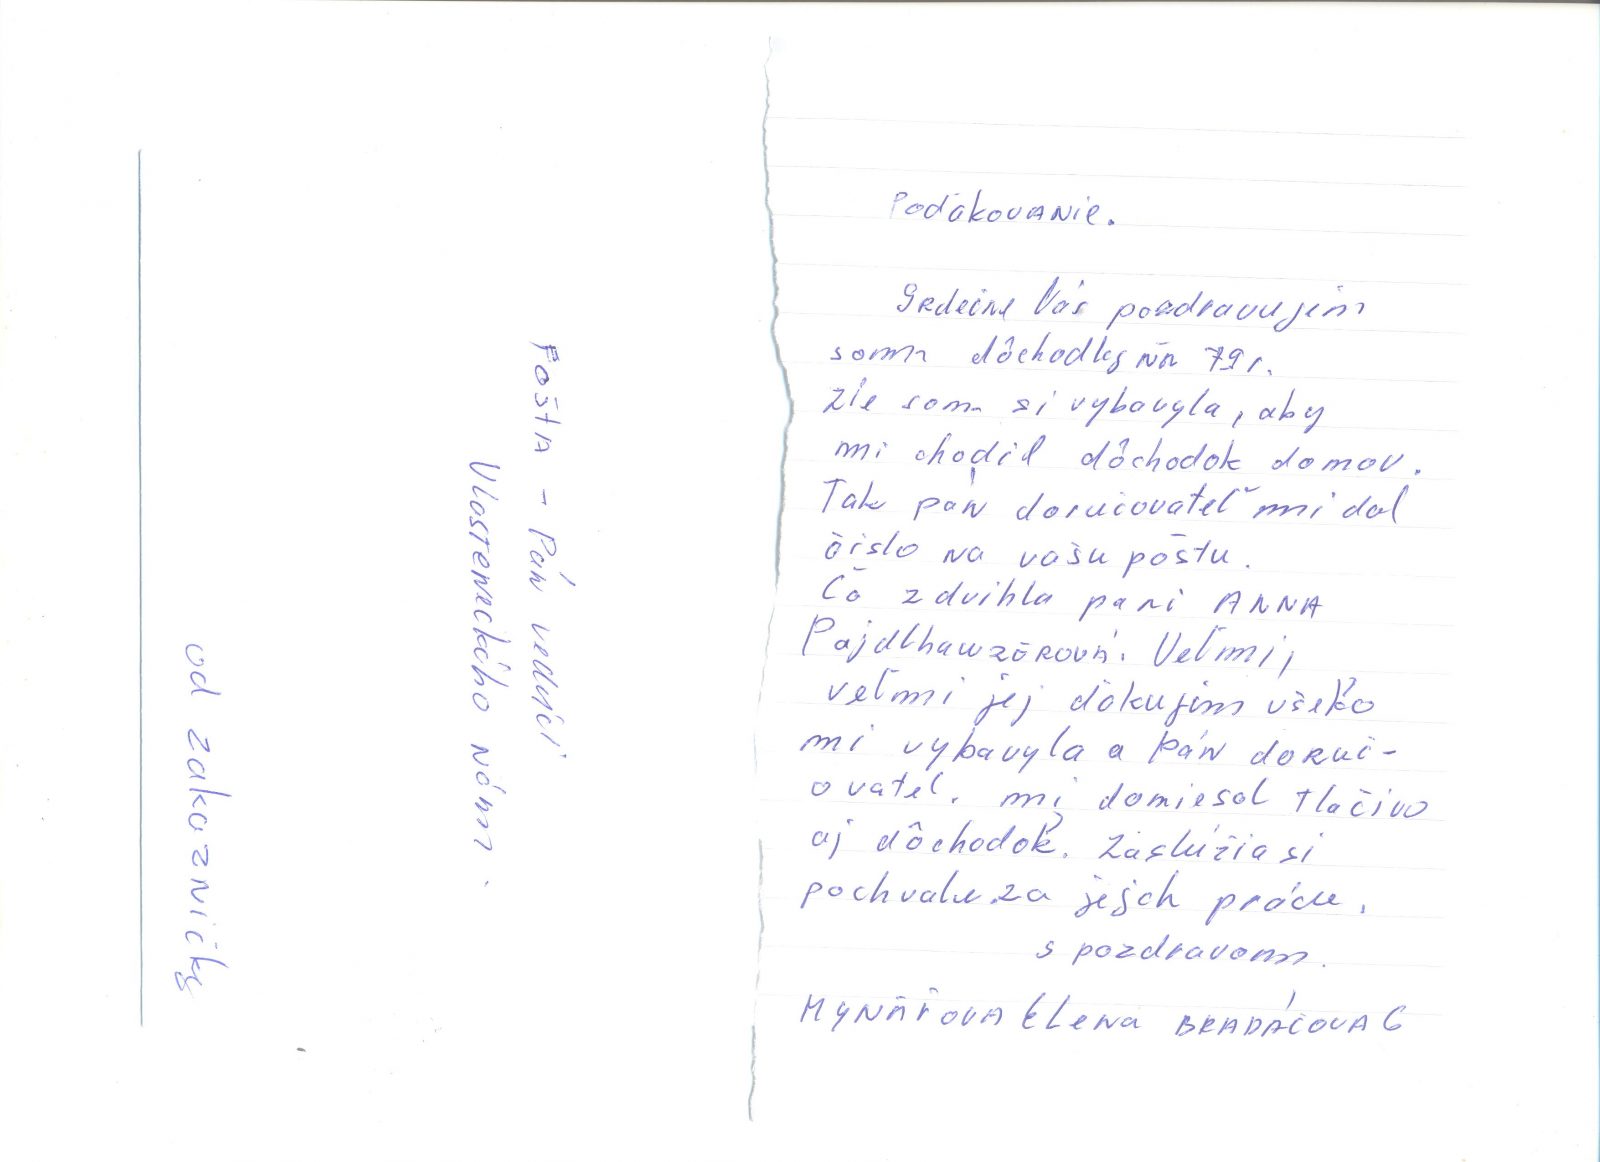 Pošta - Pán vedúci
Vlosteneckého nám.
od zakazničky
Poďakovanie.
Srdečne Vás pozdravujem
som dôchodkyňa 79 r.
Zle som si vybavyla, aby
mi chodil dôchodok domov.
Tak pán doručovateľ mi dal
číslo na vašu poštu.
Čo zdvihla pani ANNA
Veľmi,
veľmi jej ďakujem všetko
mi vybavyla a Pán doruč-
ovatel. mi doniesol tlačivo
aj dôchodok. Zaslúžia si
pochvalu za jejch prácu.
s pozdravom.
Elena BRADÁČOVA 6